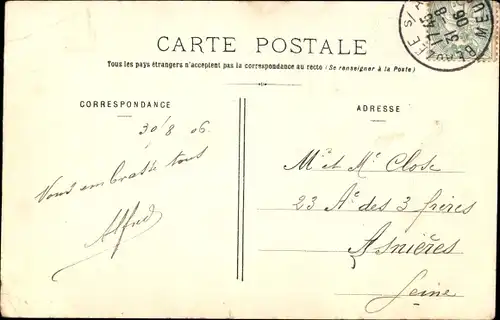 CARTE POSTALE
Tous les pays étrangers n'acceptent pas la correspondance au recto (Se renseigner à la Poste)
CORRESPONDANCE
ADRESSE
30/8 06
Vous embrasse tous
Alfred
Mr et Me Close
23 Ae des 3 frères
Asnières
Seine
17 45
31 8
06